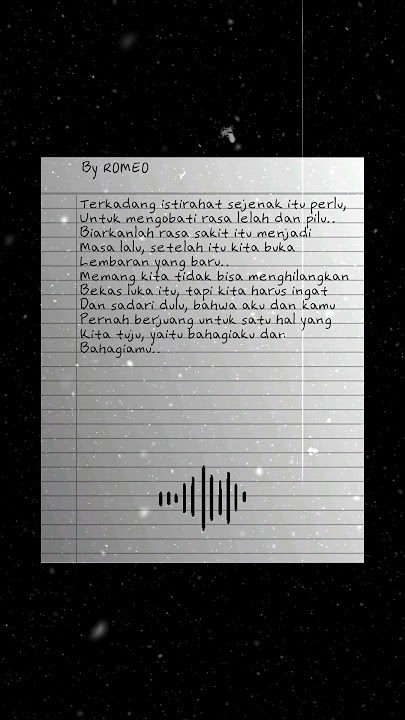 By ROMEO
Terkadang istirahat sejenak itu perlu,
Untuk mengobati rasa lelah dan pilu..
Biarkanlah rasa sakit itu menjadi
Masa lalu, setelah itu kita buka
Lembaran yang baru..
Memang kita tidak bisa menghilangkan
Bekas luka itu, tapi kita harus ingat
Dan sadari dulu, bahwa aku dan kamu
Pernah berjuang untuk satu hal yang
Kita tuju, yaitu bahagiaku dan
Bahagiamu..